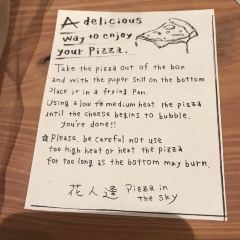 A delicious
way to enjoy
your Pizza.
Take the pizza out of the box
and with the paper still on the bottom
place it in a frying pan.
Using a low to medium heat the pizza
until the cheese begins to bubble.
you're done!!
☆ Please, be careful not use
too high heat or heat the pizza
for too long as the bottom may burn.
花人逢 Pizza in
the sky